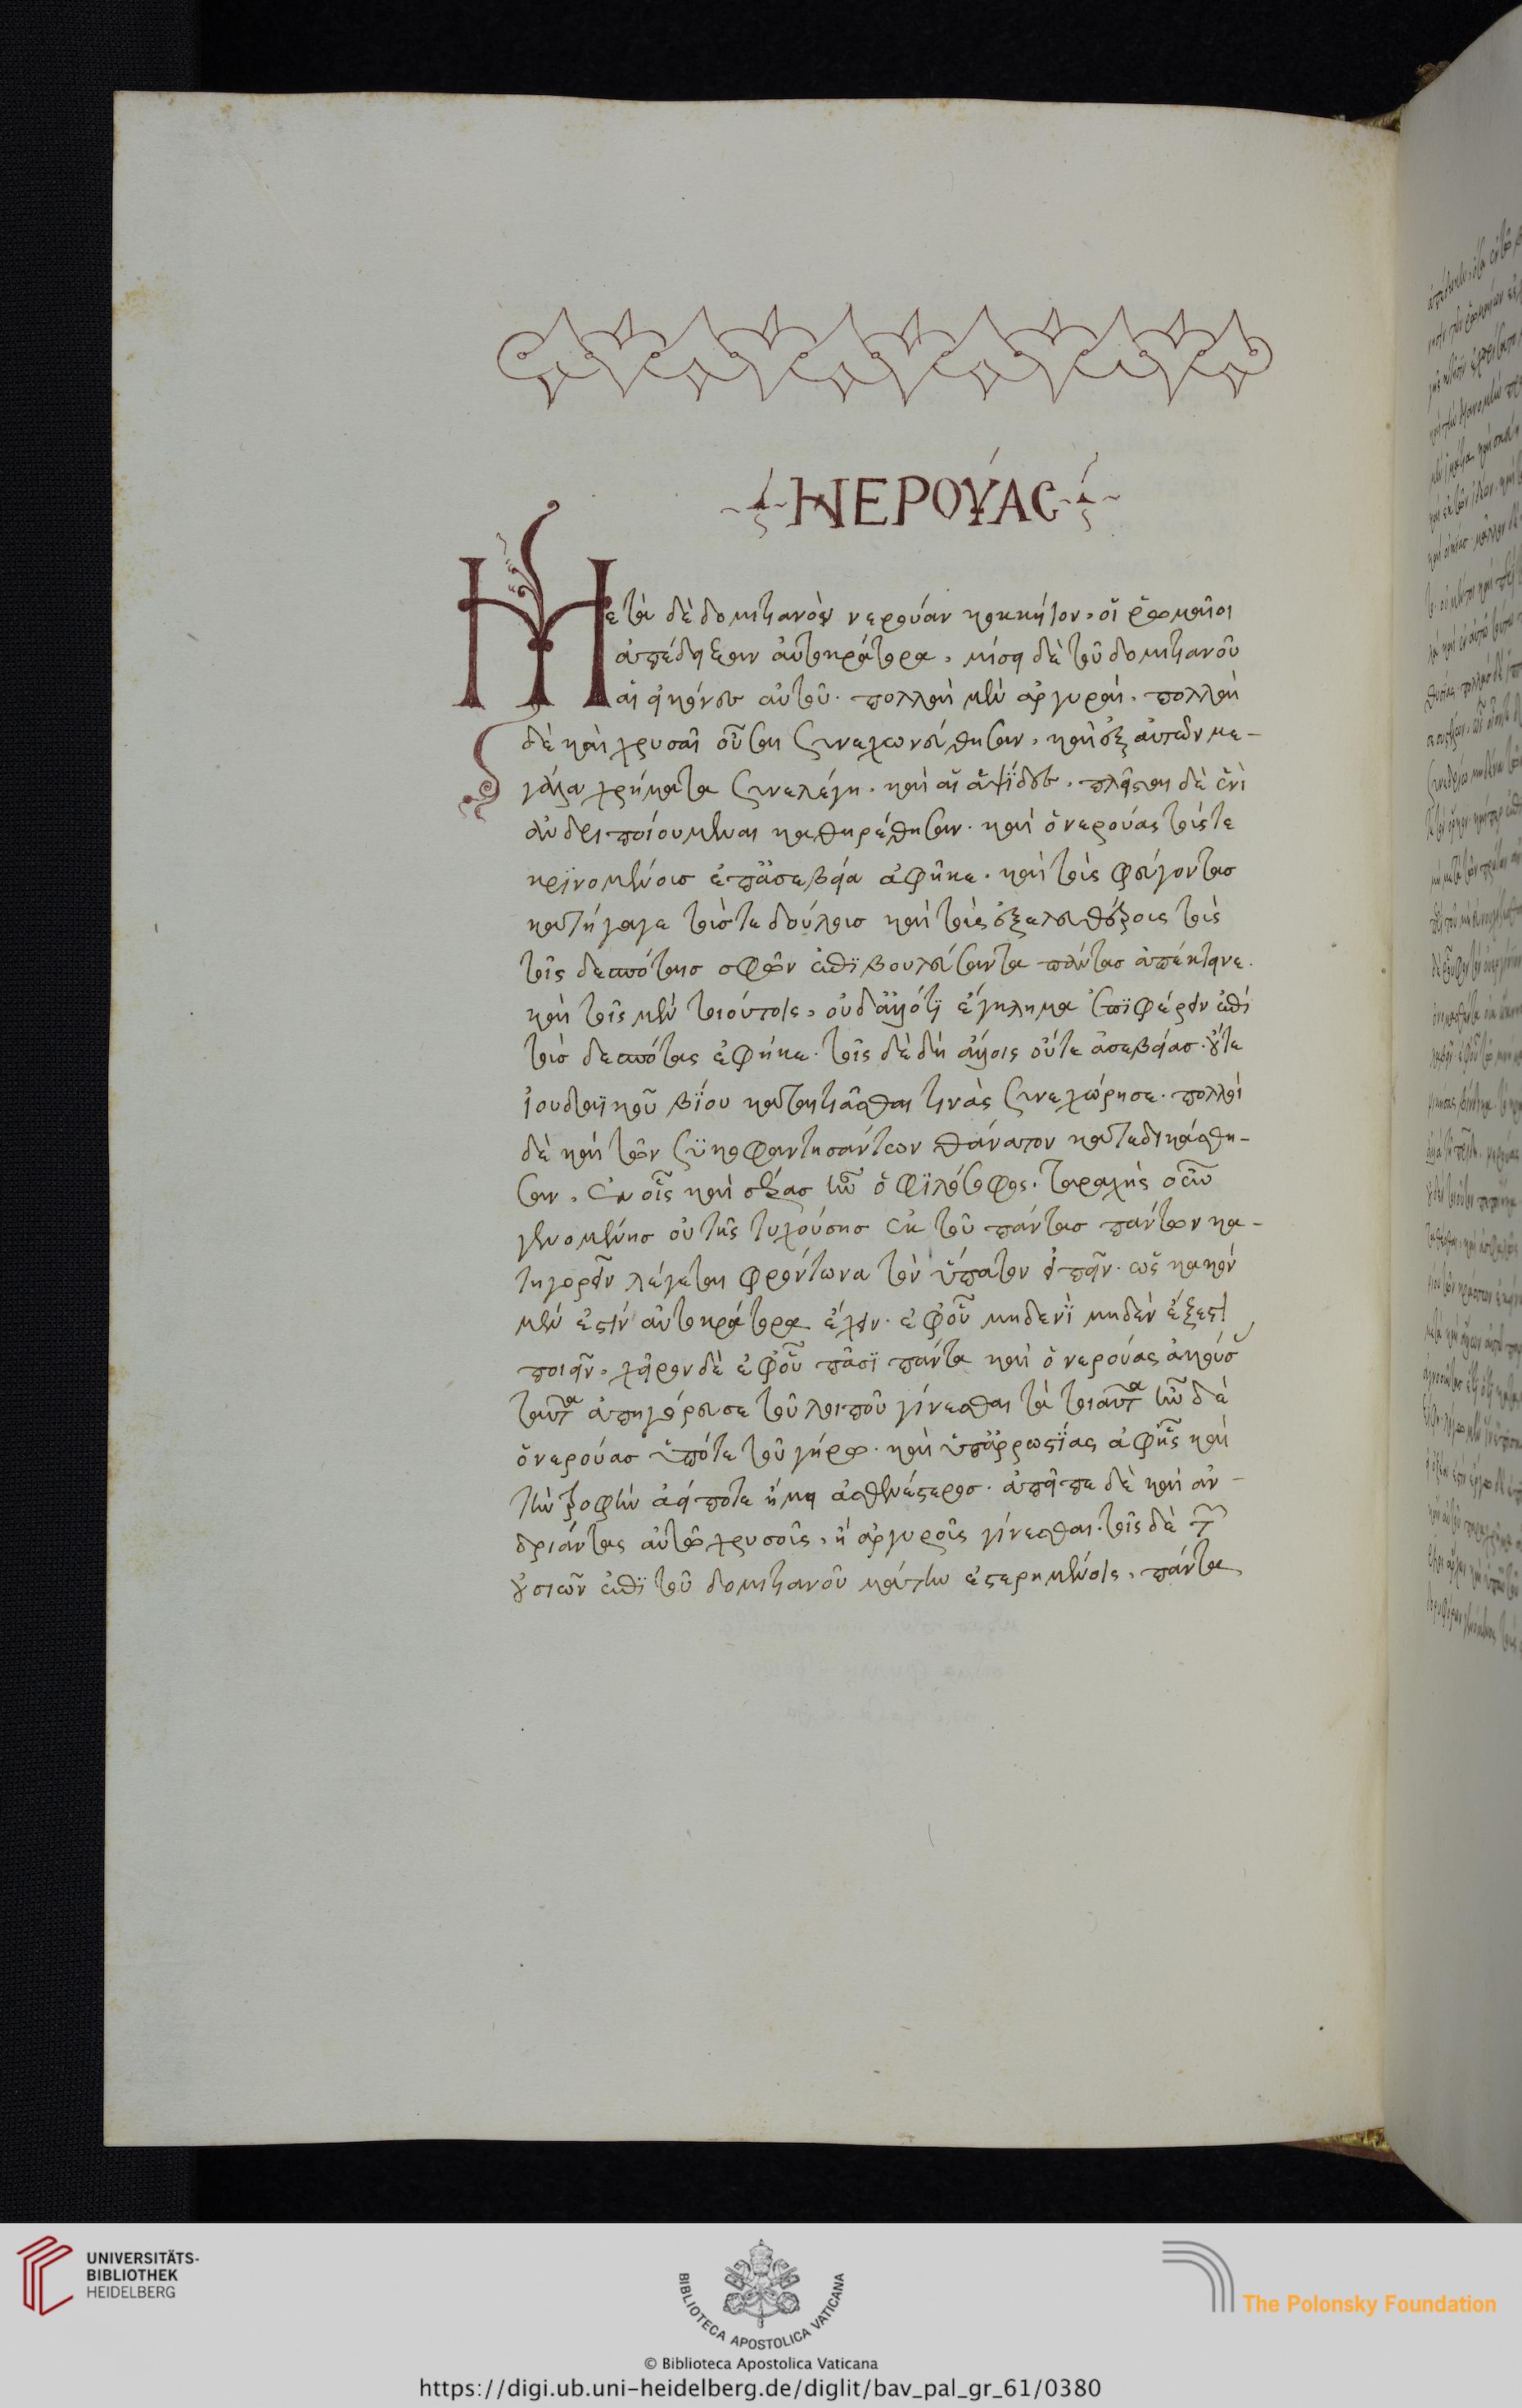 ΝΕΡΟΎΑС
Μετὰ δὲ δομιτιανὸν νερούαν κοκκήϊον, οἱ ῥωμαῖοι
ἀπέδειξαν αὐτοκράτορα, μίσει δὲ τοῦ δομιτιανοῦ
αἱ εἰκόνες αὐτοῦ. πολλαὶ μὲν ἀργυραῖ, πολλαὶ
δὲ καὶ χρυσαῖ οὖσαι συνεχωνεύθησαν, καὶ ἐξ αὐτῶν με-
γάλα χρήματα συνελέγη. καὶ αἱ ἁψῖδες, πλεῖσται δὲ ἑνὶ
ἀνδρὶ ποιούμεναι καθῃρέθησαν. καὶ ὁ νερούας τούς τε
κρινομένους ἐπ ἀσεβείᾳ ἀφῆκε. καὶ τοὺς φεύγοντας
κατήγαγε τούς τε δούλους καὶ τοὺς ἐξελευθέρους τοὺς
τοῖς δεσπόταις σφῶν ἐπιβουλεύσαντας πάντας ἀπέκτεινε.
καὶ τοῖς μὲν τοιούτοις, οὐδ ἄλλο τι ἔγκλημα ἐπιφέρειν ἐπὶ
τοὺς δεσπότας ἐφῆκε. τοῖς δὲ δὴ ἄλλοις οὔτε ἀσεβείας. οὔτε
ἰουδαϊκοῦ βίου καταιτιᾶσθαι τινὰς συνεχώρησε. πολλοὶ
δὲ καὶ τῶν συκοφαντησάντων θάνατον κατεδικάσθη-
σαν, ἐν οἷς καὶ σέρας ἦν ὁ φιλόσοφος. ταραχῆς οὖν
γενομένης οὐ τῆς τυχούσης ἐκ τοῦ πάντας πάντων κα-
τηγορεῖν λέγεται φρόντωνα τὸν ὕπατον εἰπεῖν. ὡς κακὸν
μέν ἐστιν αὐτοκράτορα ἔχειν. ἐφ οὗ μηδενὶ μηδὲν ἔξεστι
ποιεῖν, χεῖρον δὲ ἐφ οὗ πᾶσι πάντα καὶ ὁ νερούας ἀκούσ
ταῦτα ἀπηγόρευσε τοῦ λοιποῦ γίνεσθαι τὰ τοιαῦτα ἦν δὲ
ὁ νερούας ὑπό τε τοῦ γήρως. καὶ ὑπ ἀρρωστίας ἀφ ἧς καὶ
τὴν τροφὴν ἀεί ποτε ἤμει ἀσθενέστερος. ἀπεῖπε δὲ καὶ ἀν-
δριάντας αὐτῷ χρυσοῦς, ἢ ἀργυροῦς γίνεσθαι. τοῖς δὲ τῶν
οὐσιῶν ἐπὶ τοῦ δομιτιανοῦ μάτην ἐστερημένοις, πάντα
UNIVERSITÄTS-
BIBLIOTHEK
HEIDELBERG
BIBLIOTECA APOSTOLICA VATICANA
The Polonsky Foundation
© Biblioteca Apostolica Vaticana
https://digi.ub.uni-heidelberg.de/diglit/bav_pal_gr_61/0380